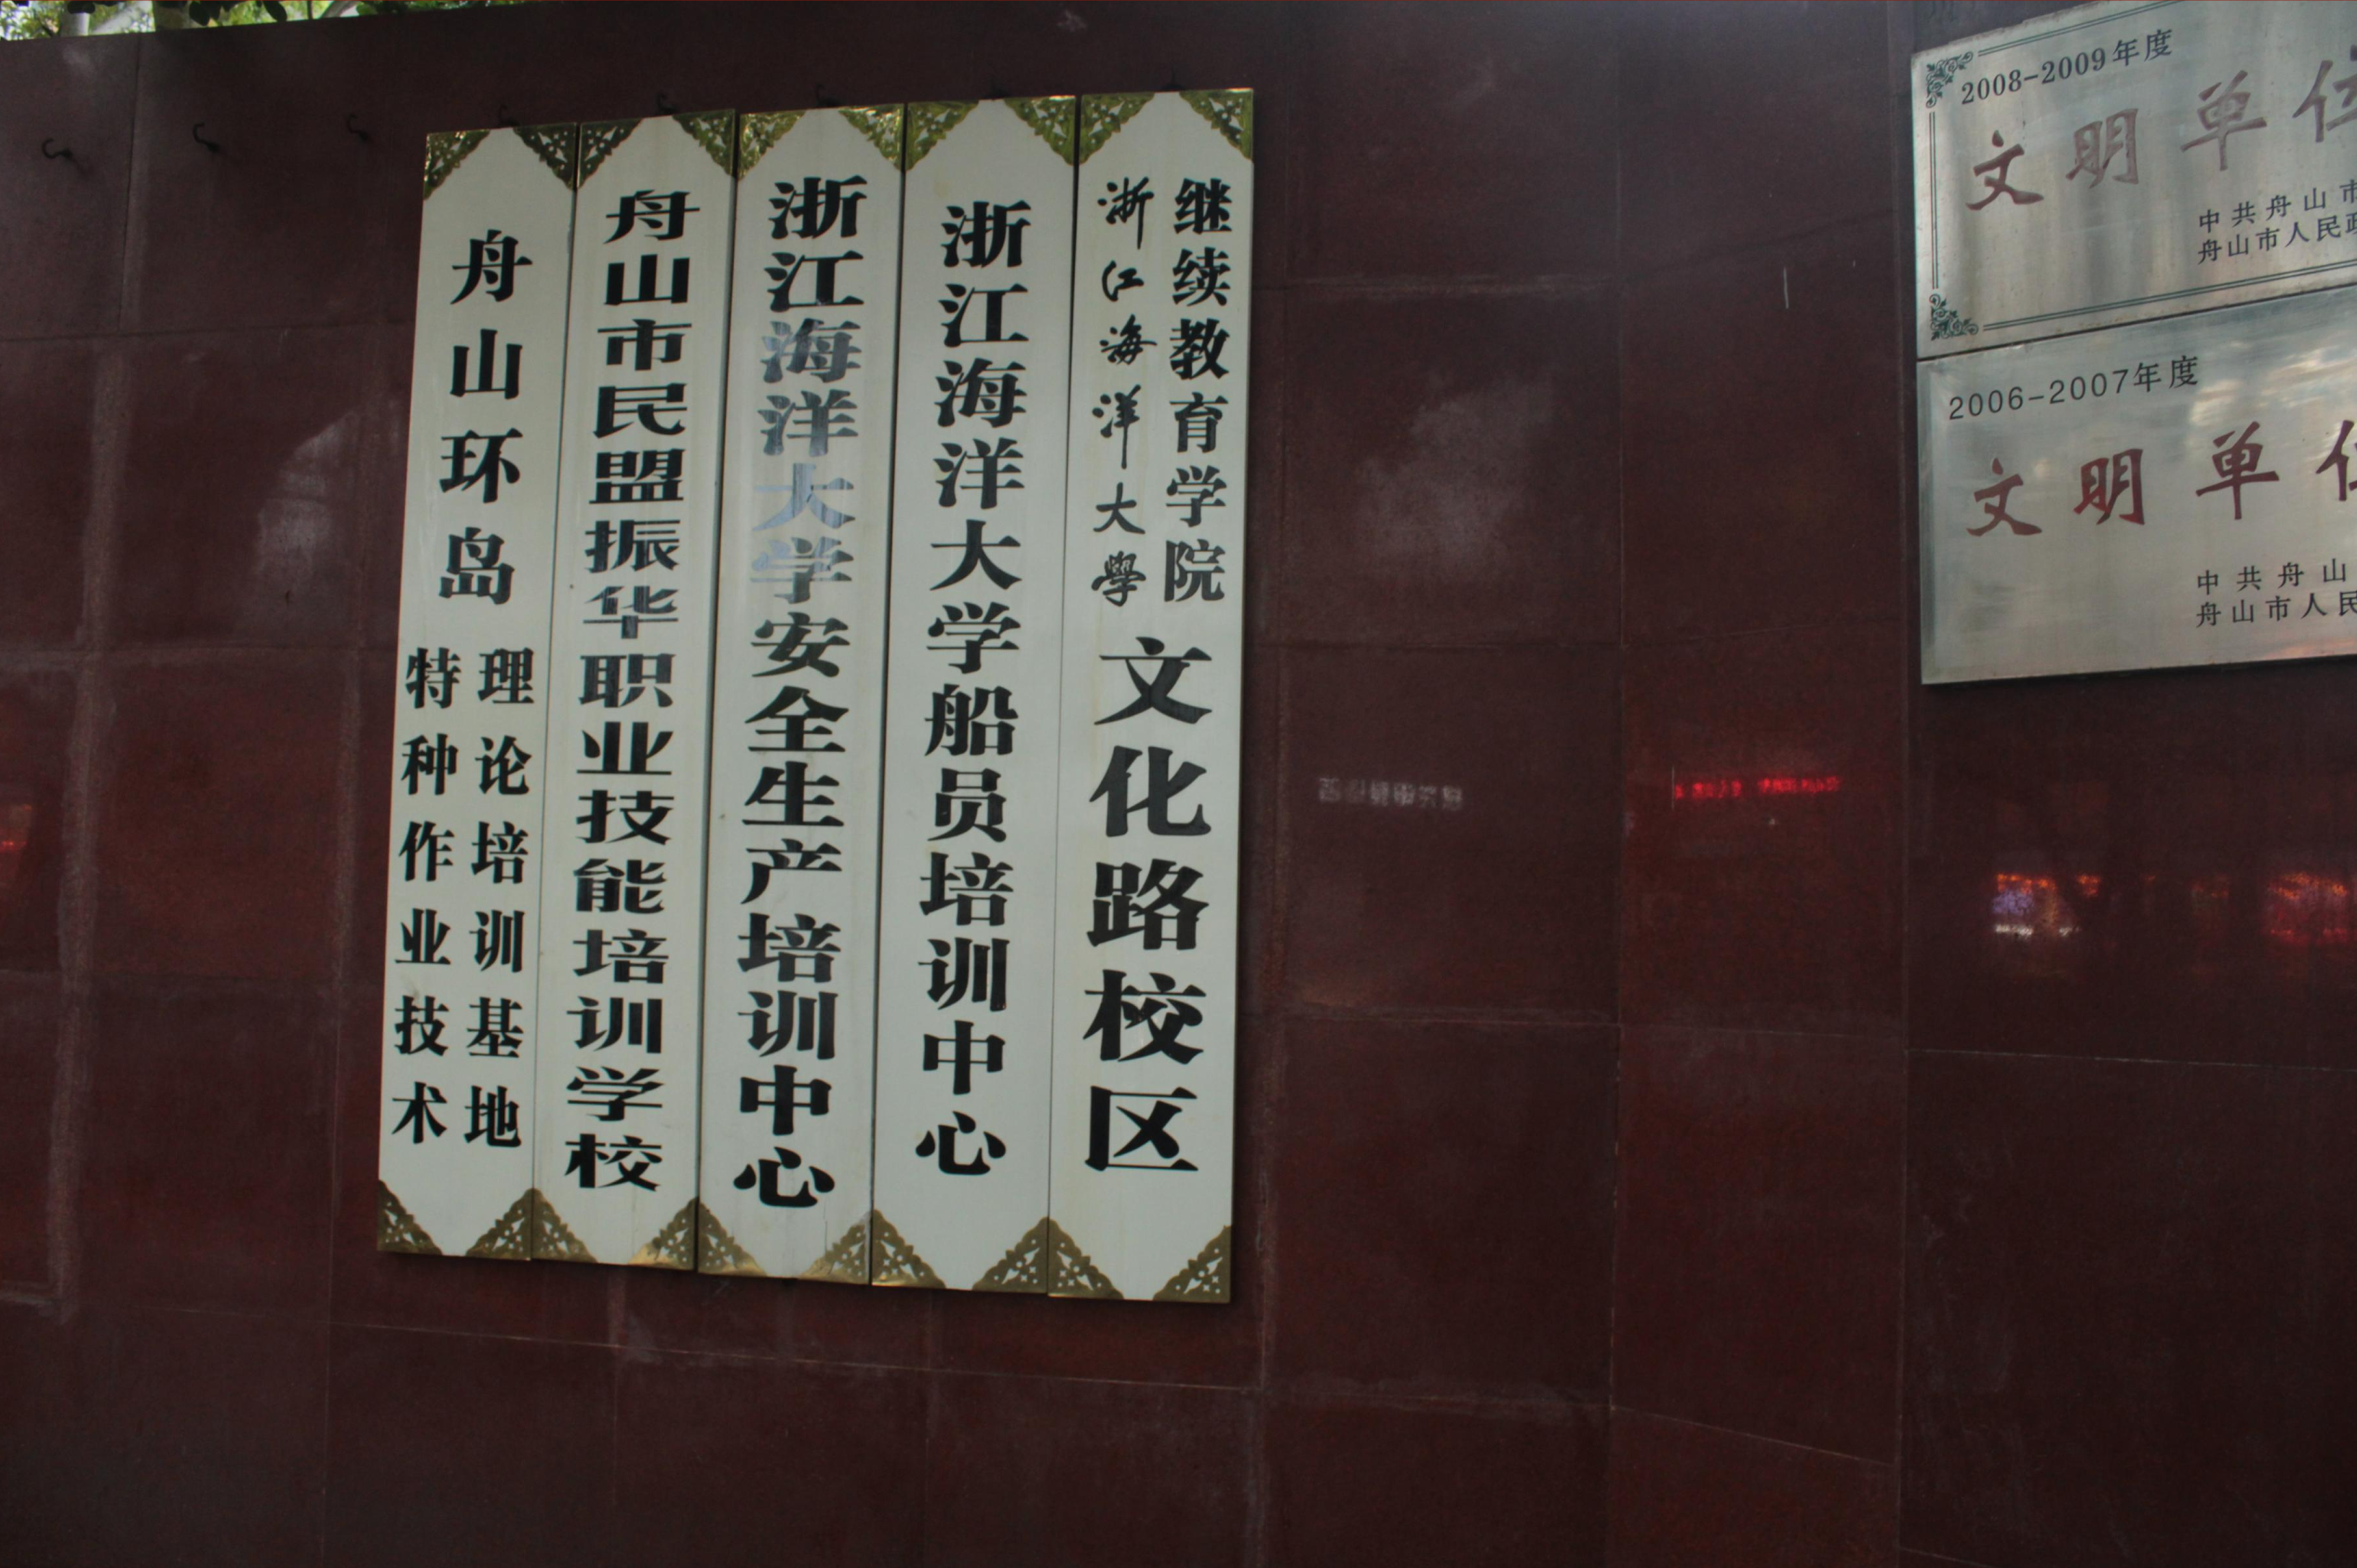 舟山环岛
特种作业技术
理论培训基地
舟山市民盟振华职业技能培训学校
浙江海洋大学安全生产培训中心
浙江海洋大学船员培训中心
浙江海洋大學
继续教育学院
文化路校区
2008-2009年度
文明单位
中共舟山市
舟山市人民政
2006-2007年度
文明单位
中共舟山
舟山市人民